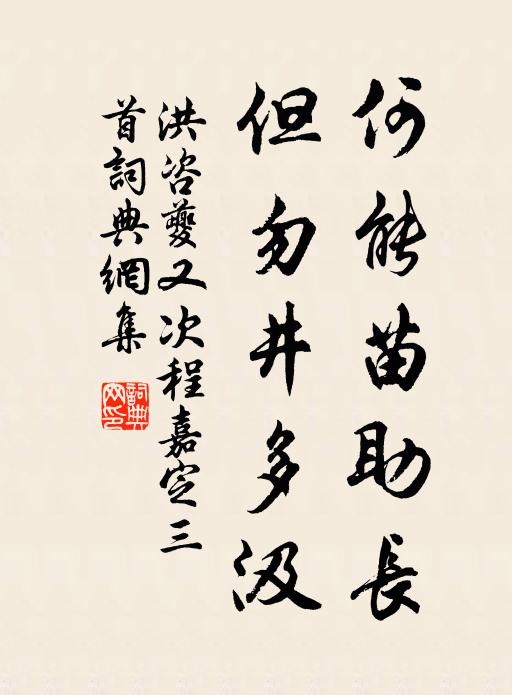 何能苗助長
但勿井多汲
洪咨夔又次程嘉定三
首詞典網集
詞典
网印